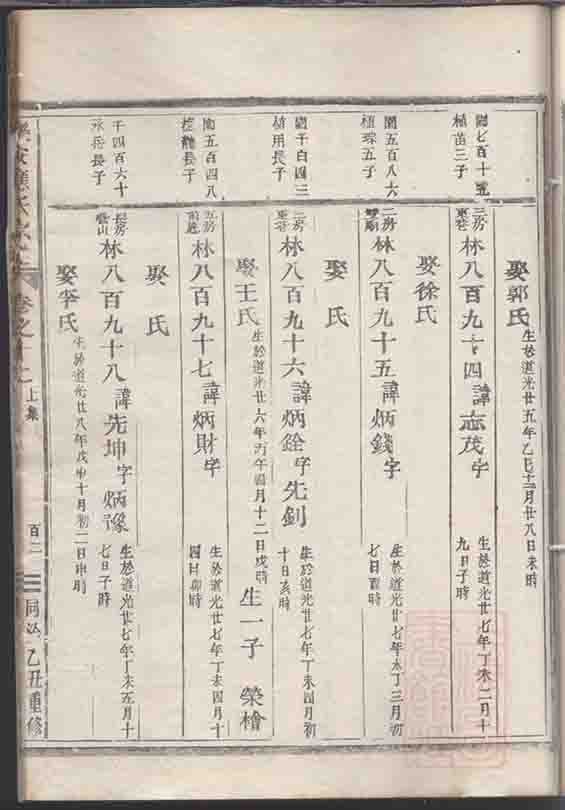 娶郭氏 生於道光廿五年乙巳十二月廿八日未時
閏七百十五
植苗三子
三房
東巷 林八百九十四 諱志茂字 生於道光廿七年丁未二月十
九日子時
娶徐氏
閏五百八六
植琮五子
二房
雙廟 林八百九十五 諱炳錢字 生於道光廿七年丁未三月初
七日酉時
娶 氏
閏千百四三
植用長子
二房
東巷 林八百九十六 諱炳銓字先釗 生於道光廿七年丁未四月初
十日亥時
娶王氏 生於道光廿六年丙午四月十二日戌時 生一子 榮檜
閏五百四八
植龍長子
五房
林八百九十七 諱炳財字 生於道光廿七年丁未四月十
四日卯時
娶 氏
千四百六十
永岳長子
長房
山 林八百九十八 諱先坤字炳豫 生於道光廿七年丁未五月十
七日子時
娶李氏 生於道光廿八年戊申十月初二日申時
應氏宗 卷之十 上集 百二 乙丑重修